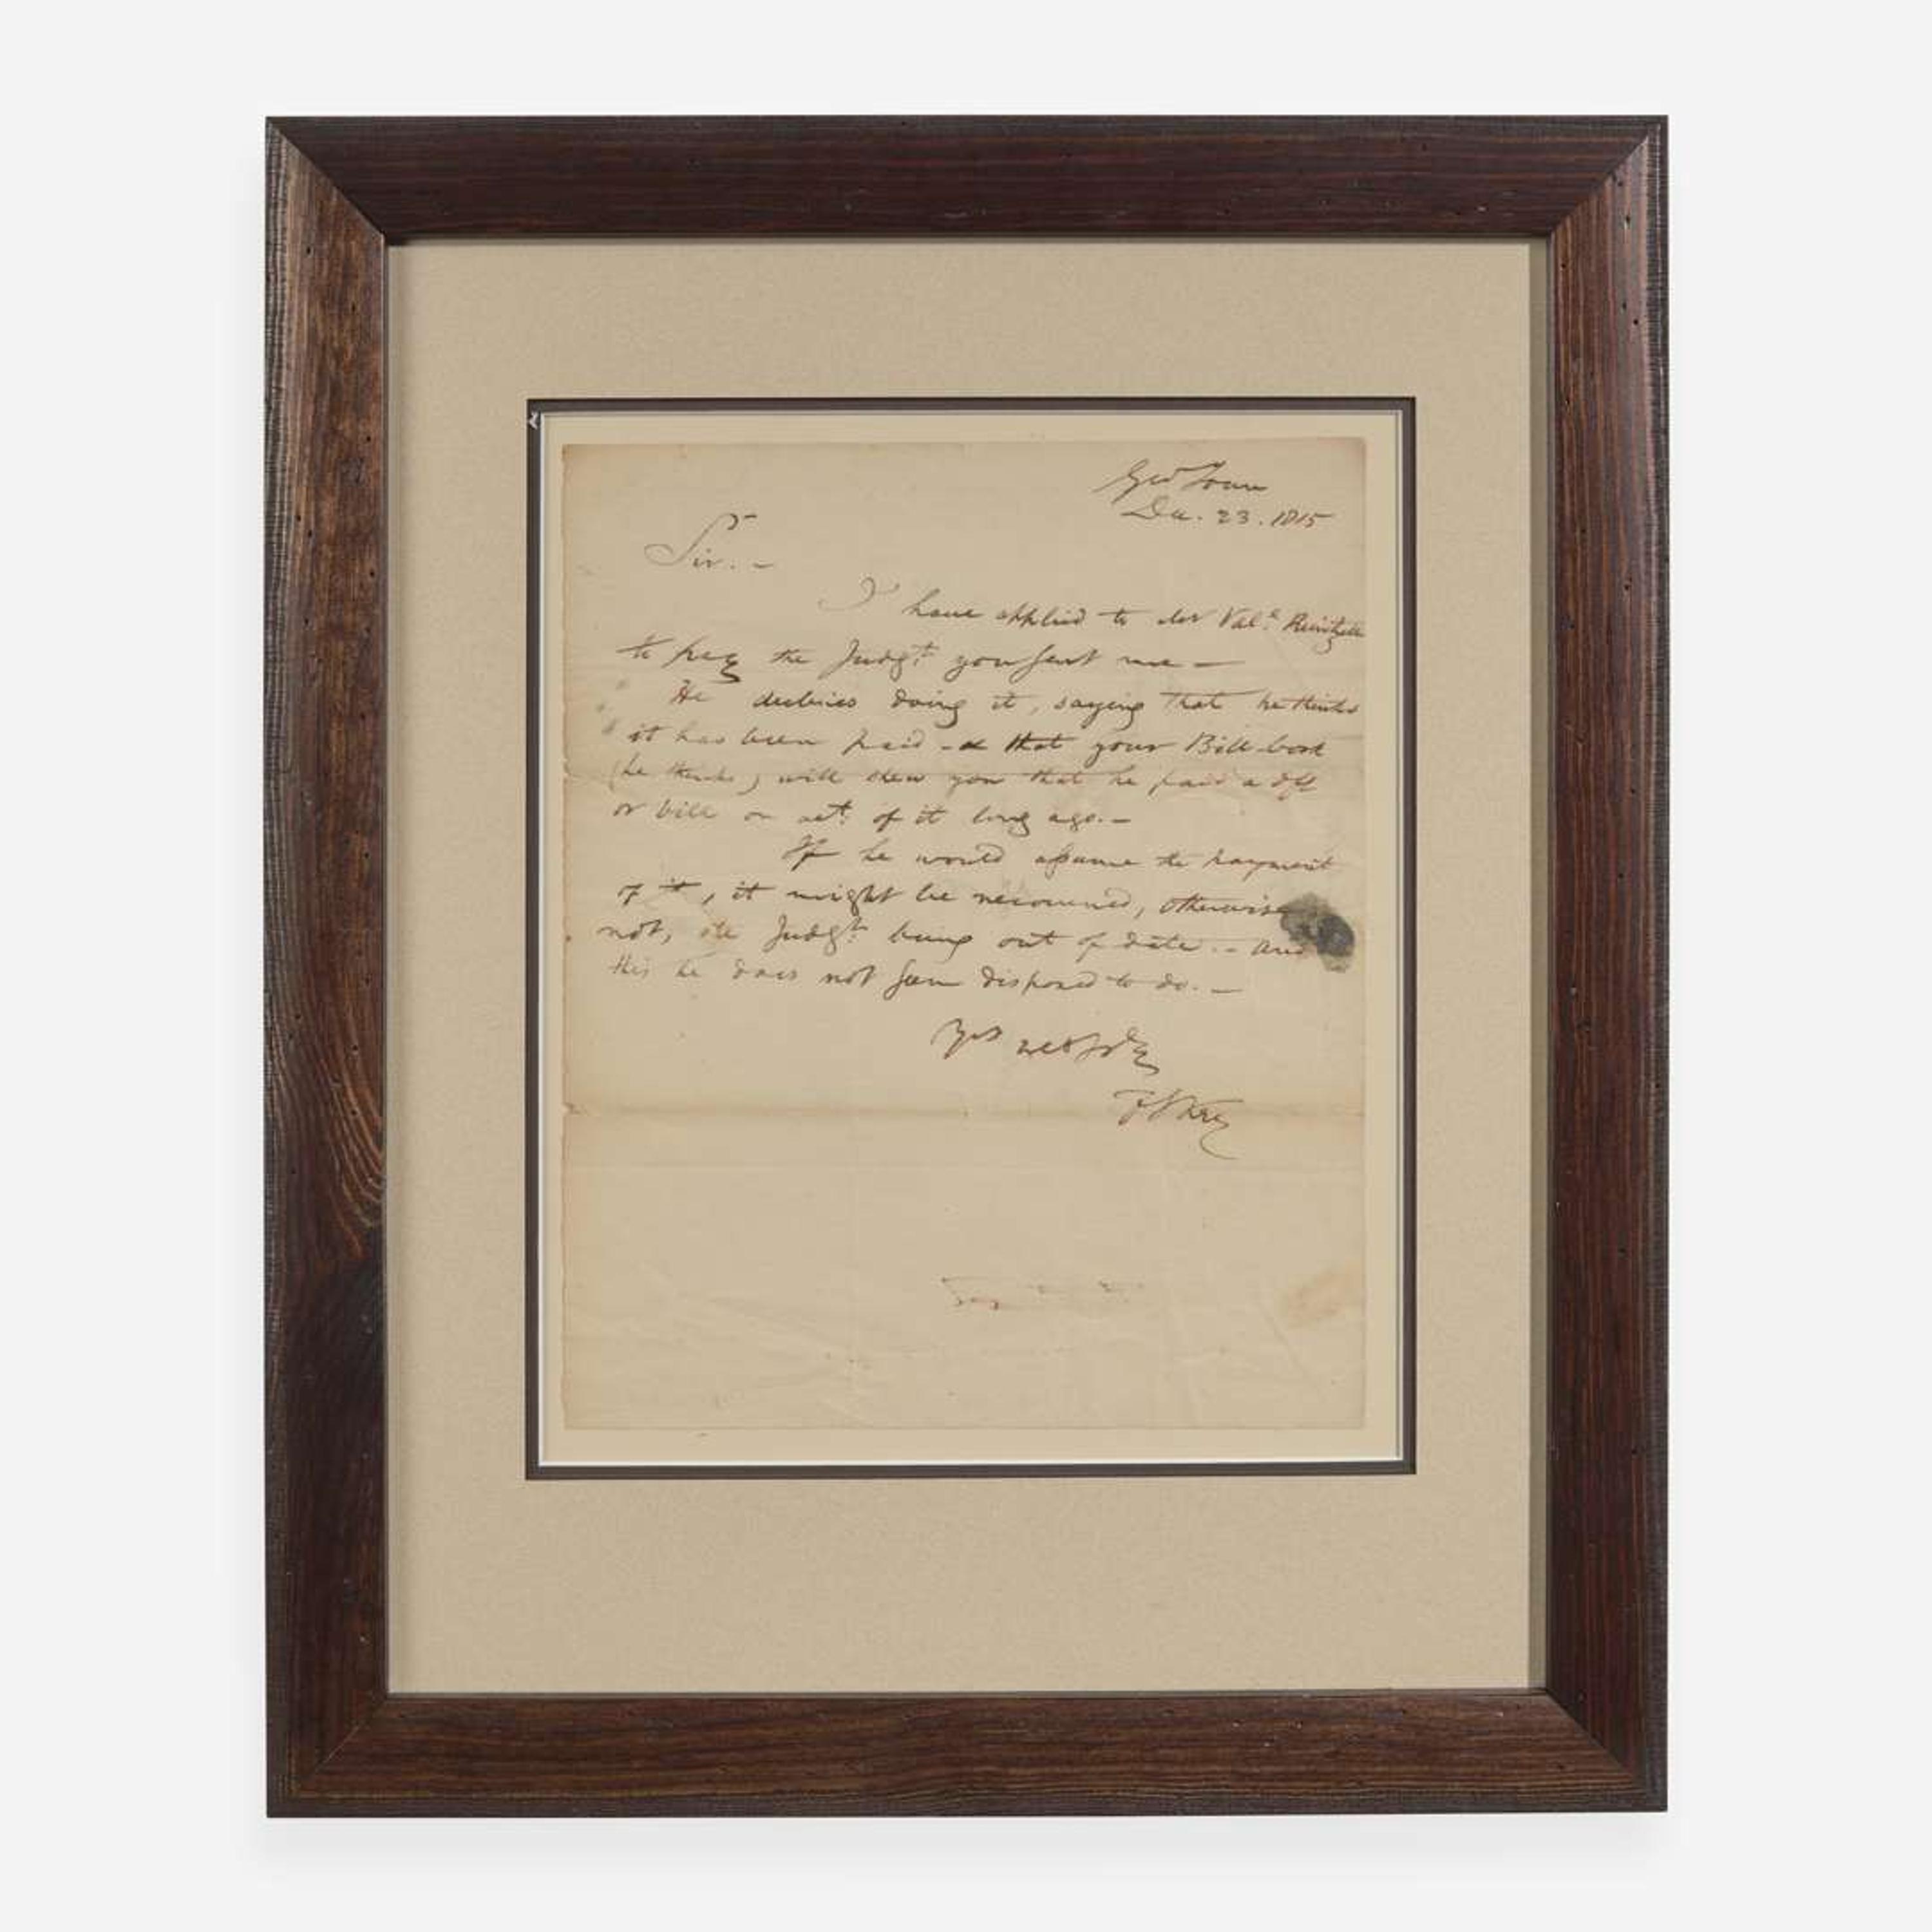 Geo Town
Dec. 23. 1815
Sir. -
I have applied to Mr Val.e Reintzell
to pay the Judg.t you sent me -
He declines doing it, saying that he thinks
it has been paid - & that your Bill-book
(he thinks) will shew you that he paid a dft
or bill on act. of it long ago. -
If he would assume the payment
of it, it might be recovered, otherwise
not, the Judg.t being out of date. - and
this he does not seem disposed to do. -
Yrs
F S Key